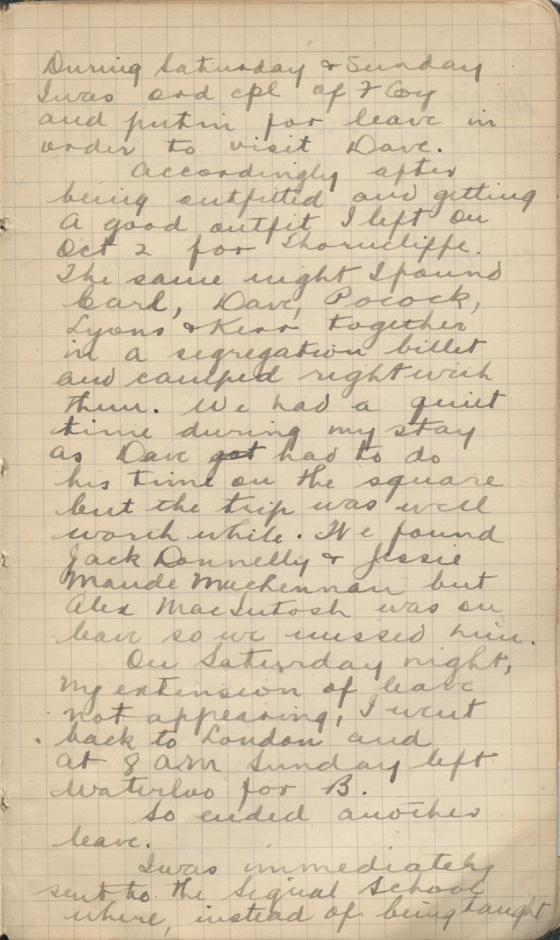 During Saturday & Sunday
I was ord cpl of F Coy
and put in for leave in
order to visit Dave.
Accordingly after
being outfitted and getting
a good outfit I left on
Oct 2 for Thorncliffe.
The same night I found
Carl, Dave, Pocock,
Lyons & Kerr together
in a segregation billet
and camped right with
them. We had a quiet
time during my stay
as Dave got had to do
his time on the square
but the trip was well
worth while. We found
Jack Donnelly & Jessie
Maude Muchennan but
Alex MacIntosh was on
leave so we missed him.
On Saturday night,
my extension of leave
not appearing, I went
back to London and
at 8 AM Sunday left
Waterloo for B.
So ended another
leave.
I was immediately
sent to the Signal School
where, instead of being taught